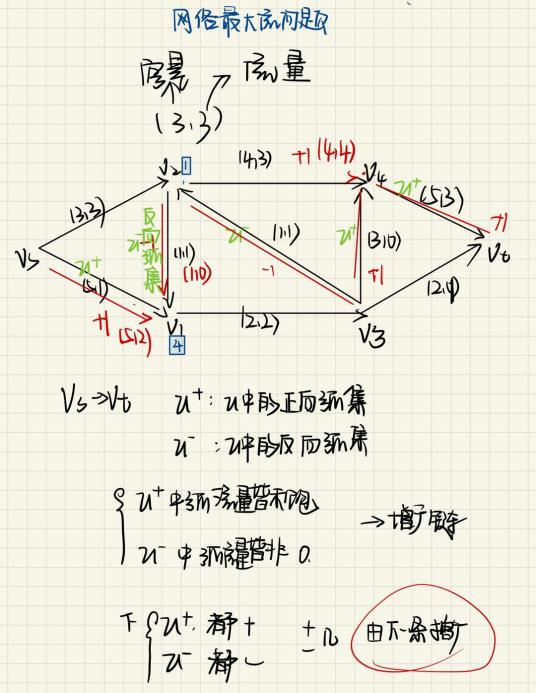 网络最大流问题
容量 流量
(3,3)
V2 1 (4,3) +1 (4,4) V4
u+ (5,3)
(3,3) 反向弧集 u- (1,1) (1,0) u- (1,1) -1 u+ (3,0) +1 +1
Vs u+ (5,1) Vt
+1 (5,2) V1 (2,2) V3
4
Vs→Vt u+:u中的正向弧集
u-:u中的反向弧集
u+中弧流量皆不饱
→增广链
u-中弧流量皆非0.
u+ 都+
u- 都-